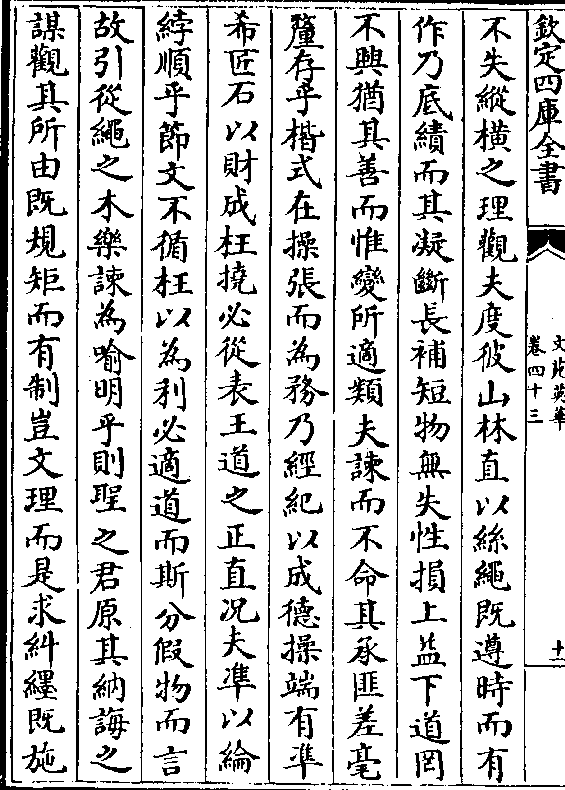 欽定四庫全書
文苑英華
卷四十三
十一
不失縱橫之理觀夫度彼山林直以絲繩既遵時而有
作乃底績而其凝斷長補短物無失性損上益下道罔
不興猶其善而惟變所適類夫諫而不命其承匪差毫
釐存乎楷式在操張而為務乃經紀以成德操端有準
希匠石以財成枉撓必從表王道之正直況夫準以綸
綍順乎節文不循枉以為利必適道而斯分假物而言
故引從繩之木樂諫為喻明乎則聖之君原其納誨之
謀觀其所由既規矩而有制豈文理而是求糾纆既施